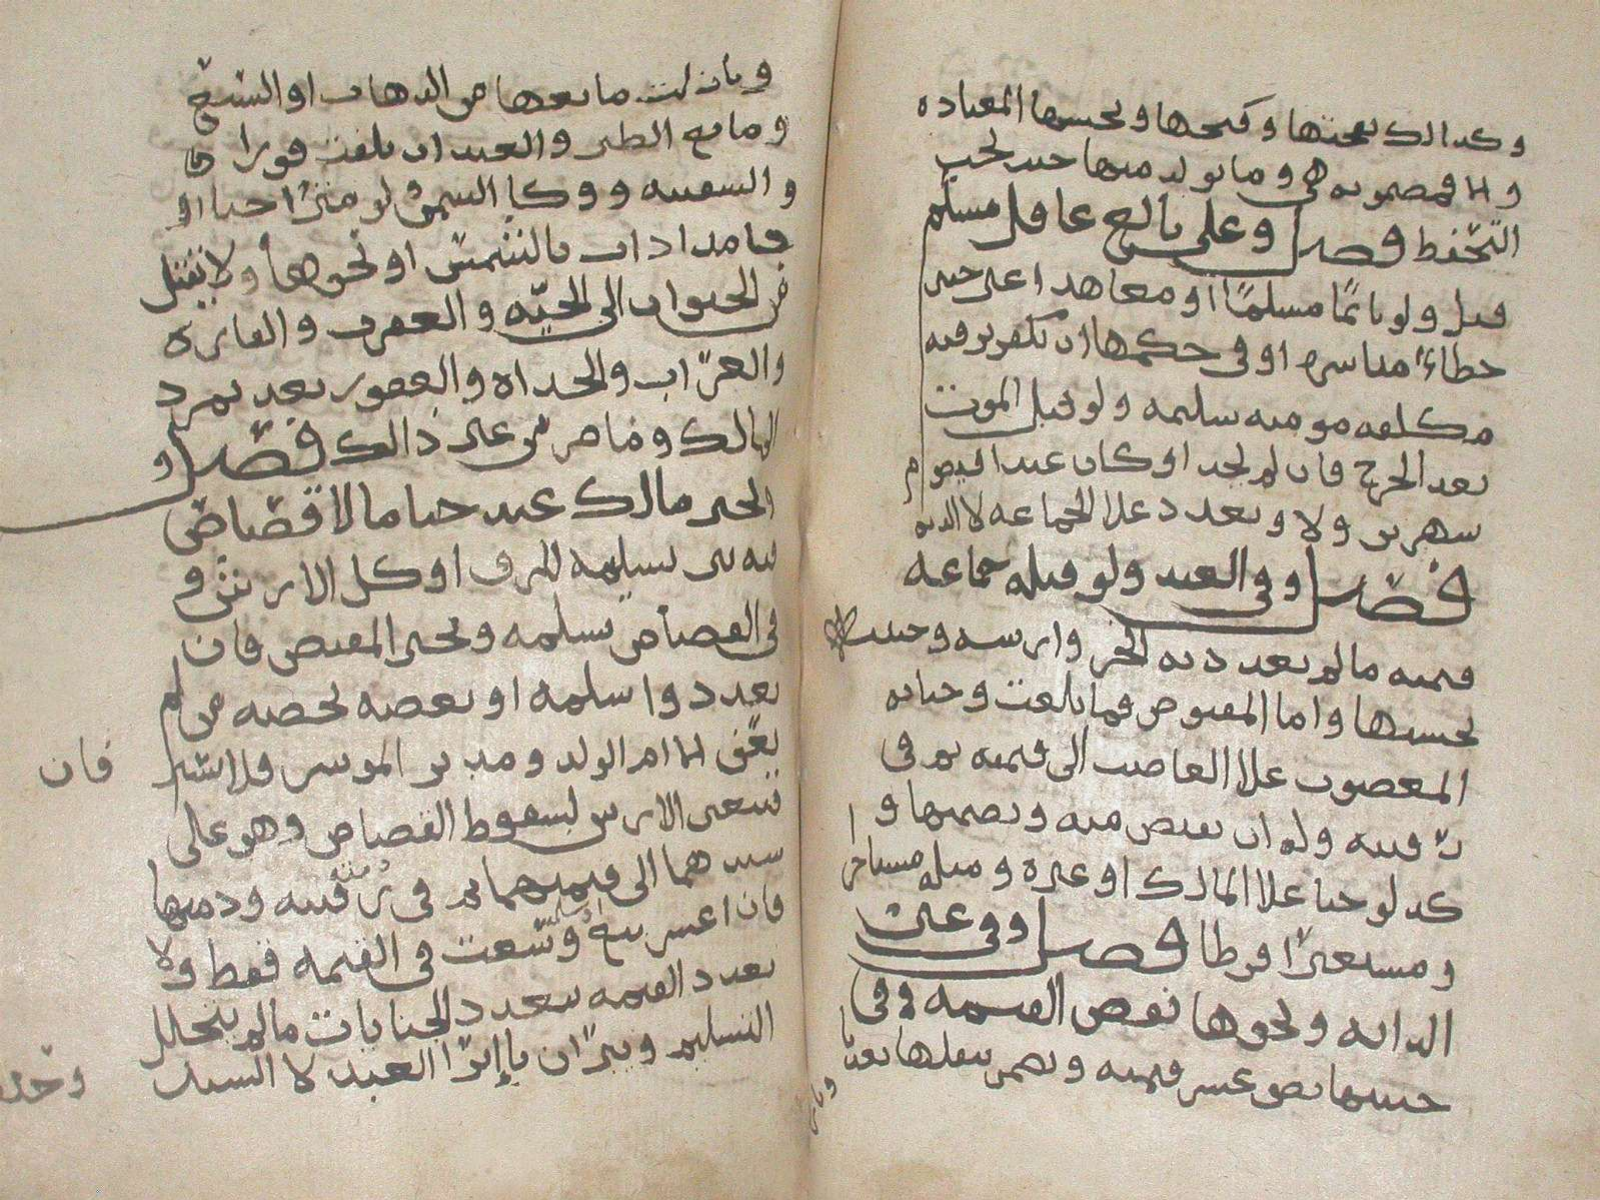 وكدالك عجنها وكبحها ونحسها المعتاده
والا فمضمونه هي وما تولد منها حيث يجب
التحفظ فصل وعلى بالغ عاقل مسلم
قتل ولو نائمًا مسلمًا او معاهدا غير حربي
خطاءً مباشره او في حكمها ان يكفر برقبه
مكلفه مومنه سليمه ولو قبل الموت
بعد الجرح فان لم يجد او كان عبدا فيصوم
شهرين ولا وتعدد علا الجماعه لا الديه
فصل وفي العبد ولو قتله جماعه
قيمته مالم تعدد ديه الحر وارشه وجنينه
بحسبها واما المغصوب فما بلغت وجنايه
المغصوب علا الغاصب الى قيمته ثم في
رقبته وله ان يقتص منه ويضمنها و
كد لو جنا علا المالك او غيره ومثله مستاجر
ومستعيرًا فرطا فصل وفي عين
الدابه ونحوها نقص القيمه وفي
جنينها نصف عشر قيمته وتضمن بنقلها تعديا
وبازالت مانعها من الدهاب او السبع
وما مع الطير والعبد ان تلفت فورا
والسفينه ووكا السمن ولو متراخيا او
جامدا داب بالشمس او نحوها ولا يقتل
من الحيوان الى الحيّه والعقرب والفاره
والغراب والحداه والعقور بعد تمرد
المالك وما ضر من غير دالك فصل و
يخير مالك عبد جنا مالا قصاص
فيه بين تسليمه للرق او كل الارش و
في القصاص يسلمه ويخير المقتص فان
تعددوا سلمه او بعضه بحصه من لم
يعف الا ام الولد ومدبر الموسر فلا فان
فيتعين الارش لسقوط القصاص وهو على
سيدهما الى قيمتهما ثم في رقبته ودمتها
فان اعسر بيع وسعت في القيمه فقط ولا
تعدد القيمه بتعدد الجنايات مالم يتخلل
التسليم ويبران بابرا العبد لا السيد